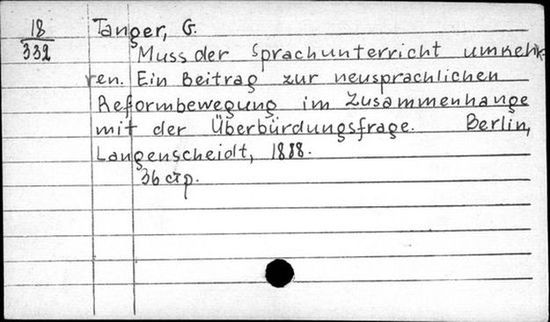 18
332
Tanger, G.
Muss der Sprachunterricht umkeh-
ren. Ein Beitrag zur neusprachlichen
Reformbewegung im Zusammenhange
mit der Überbürdungsfrage. Berlin,
Langenscheidt, 1888.
36 стр.